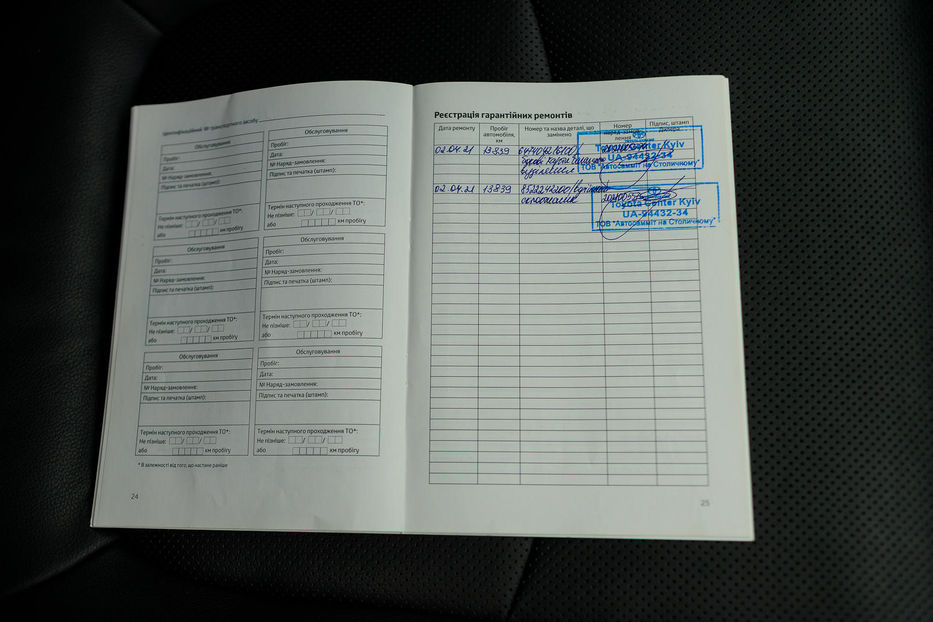 Ідентифікаційний № транспортного засобу
Обслуговування
Пробіг:
Дата:
№ Наряд-замовлення:
Підпис та печатка (штамп):
Термін наступного проходження ТО*:
Не пізніше: / /
або км пробігу
Обслуговування
Пробіг:
Дата:
№ Наряд-замовлення:
Підпис та печатка (штамп):
Термін наступного проходження ТО*:
Не пізніше: / /
або км пробігу
Обслуговування
Пробіг:
Дата:
№ Наряд-замовлення:
Підпис та печатка (штамп):
Термін наступного проходження ТО*:
Не пізніше: / /
або км пробігу
Обслуговування
Пробіг:
Дата:
№ Наряд-замовлення:
Підпис та печатка (штамп):
Термін наступного проходження ТО*:
Не пізніше: / /
або км пробігу
Обслуговування
Пробіг:
Дата:
№ Наряд-замовлення:
Підпис та печатка (штамп):
Термін наступного проходження ТО*:
Не пізніше: / /
або км пробігу
Обслуговування
Пробіг:
Дата:
№ Наряд-замовлення:
Підпис та печатка (штамп):
Термін наступного проходження ТО*:
Не пізніше: / /
або км пробігу
* В залежності від того, що настане раніше
24
Реєстрація гарантійних ремонтів
Дата ремонту
Пробіг автомобіля, км
Номер та назва деталі, що замінено
Номер
Підпис, штамп
02.04.21
13839
Toyota Center Kyiv
UA-94432-34
ТОВ "Автосамміт на Столичному"
02.04.21
13839
Toyota Center Kyiv
UA-94432-34
ТОВ "Автосамміт на Столичному"
25